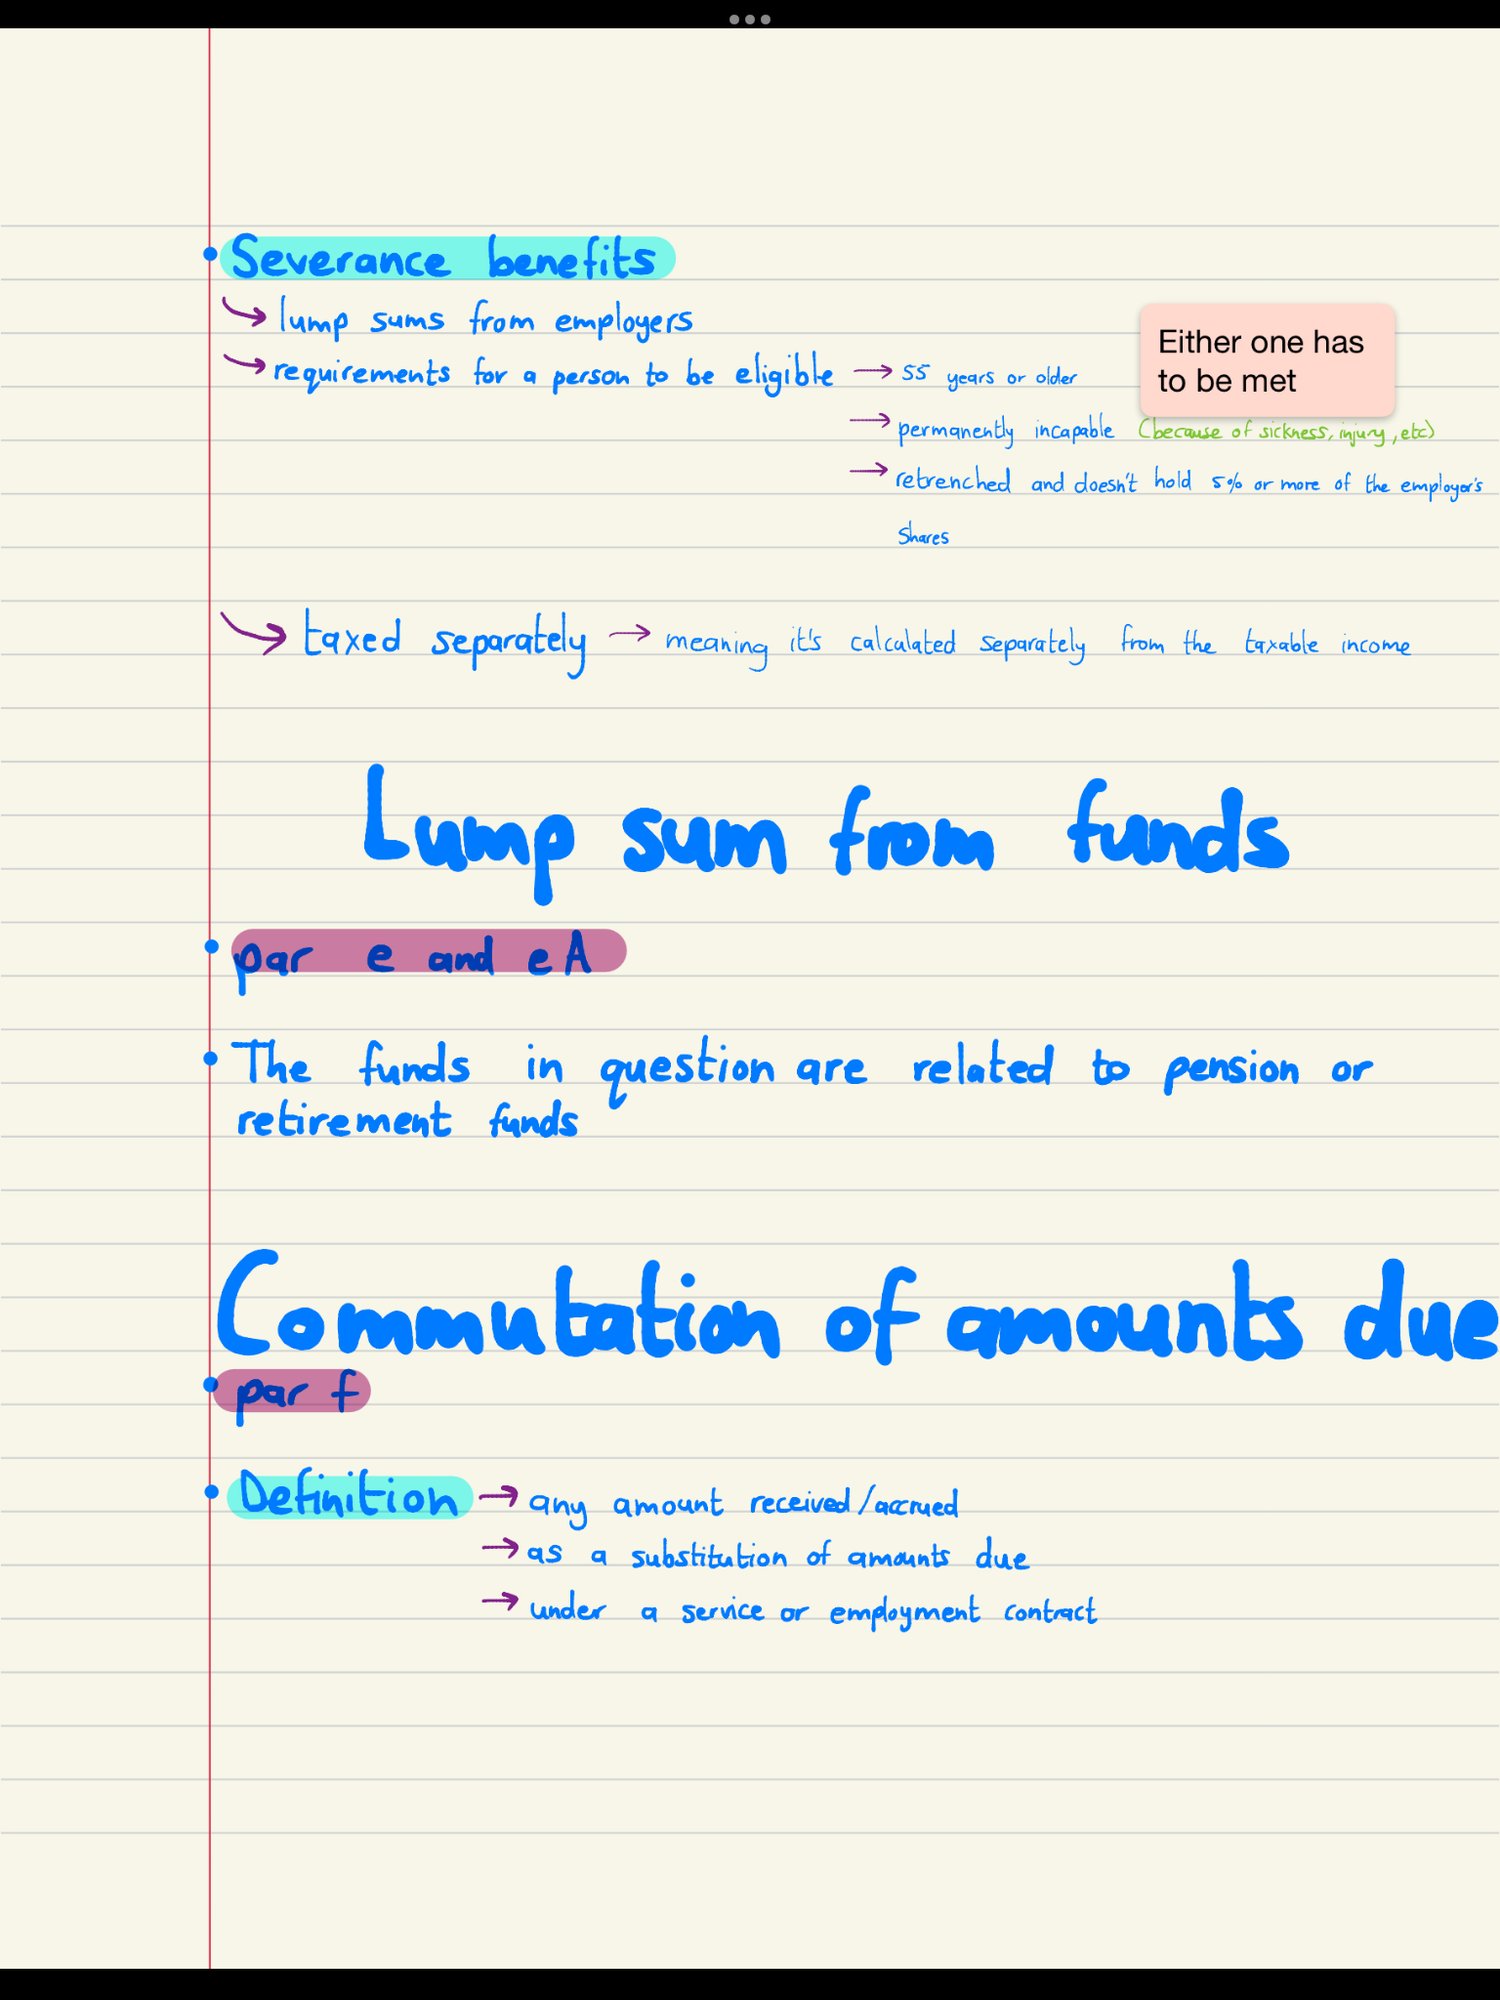 Severance benefits
lump sums from employers
Either one has
to be met
requirements for a person to be eligible → 55 years or older
→ permanently incapable (because of sickness, injury, etc)
→ retrenched and doesn't hold 5% or more of the employer's
shares
taxed separately → meaning it's calculated separately from the taxable income
Lump sum from funds
par e and eA
The funds in question are related to pension or
retirement funds
Commutation of amounts due
par f
Definition → any amount received/accrued
→ as a substitution of amounts due
→ under a service or employment contract